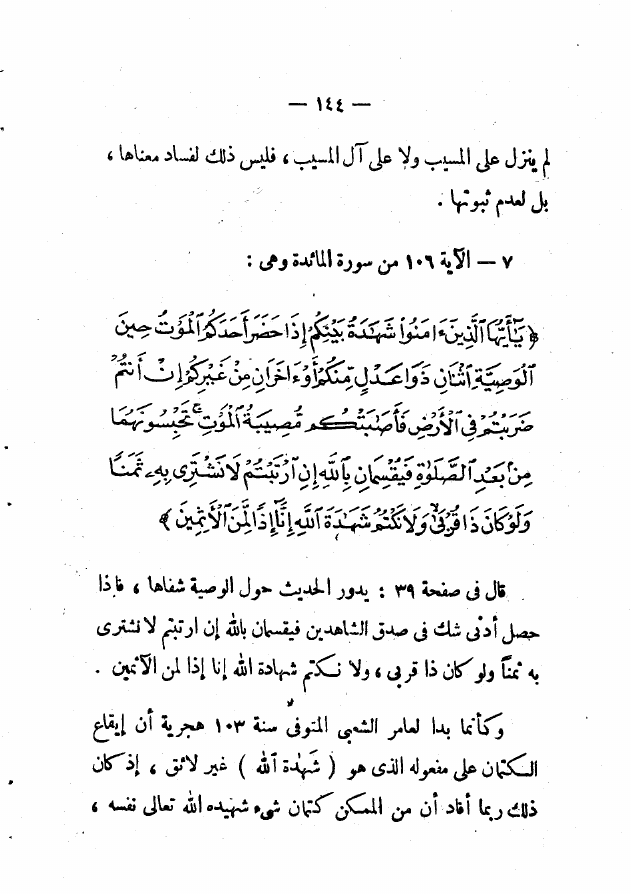 — ١٤٤ —
لم ينزل على المسيب ولا على آل المسيب، فليس ذلك لفساد معناها،
بل لعدم ثبوتها.
٧ — الآية ١٠٦ من سورة المائدة وهى :
﴿ يَٰٓأَيُّهَا ٱلَّذِينَ ءَامَنُوا۟ شَهَٰدَةُ بَيْنِكُمْ إِذَا حَضَرَ أَحَدَكُمُ ٱلْمَوْتُ حِينَ
ٱلْوَصِيَّةِ ٱثْنَانِ ذَوَا عَدْلٍ مِّنكُمْ أَوْ ءَاخَرَانِ مِنْ غَيْرِكُمْ إِنْ أَنتُمْ
ضَرَبْتُمْ فِى ٱلْأَرْضِ فَأَصَٰبَتْكُم مُّصِيبَةُ ٱلْمَوْتِ ۚ تَحْبِسُونَهُمَا
مِنۢ بَعْدِ ٱلصَّلَوٰةِ فَيُقْسِمَانِ بِٱللَّهِ إِنِ ٱرْتَبْتُمْ لَا نَشْتَرِى بِهِۦ ثَمَنًا
وَلَوْ كَانَ ذَا قُرْبَىٰ ۙ وَلَا نَكْتُمُ شَهَٰدَةَ ٱللَّهِ إِنَّآ إِذًا لَّمِنَ ٱلْءَاثِمِينَ ﴾
قال فى صفحة ٣٩ : يدور الحديث حول الوصية شفاها، فإذا
حصل أدنى شك فى صدق الشاهدين فيقسمان بالله إن ارتبتم لا نشترى
به ثمناً ولو كان ذا قربى، ولا نكتم شهادة الله إنا إذا لمن الآثمين .
وكأنما بدا لعامر الشعبى المتوفى سنة ١٠٣ هجرية أن إيقاع
الكتمان على مفعوله الذى هو ( شَهَٰدَةَ ٱللَّهِ ) غير لائق، إذ كان
ذلك ربما أفاد أن من الممكن كتمان شىء شهيده الله تعالى نفسه،